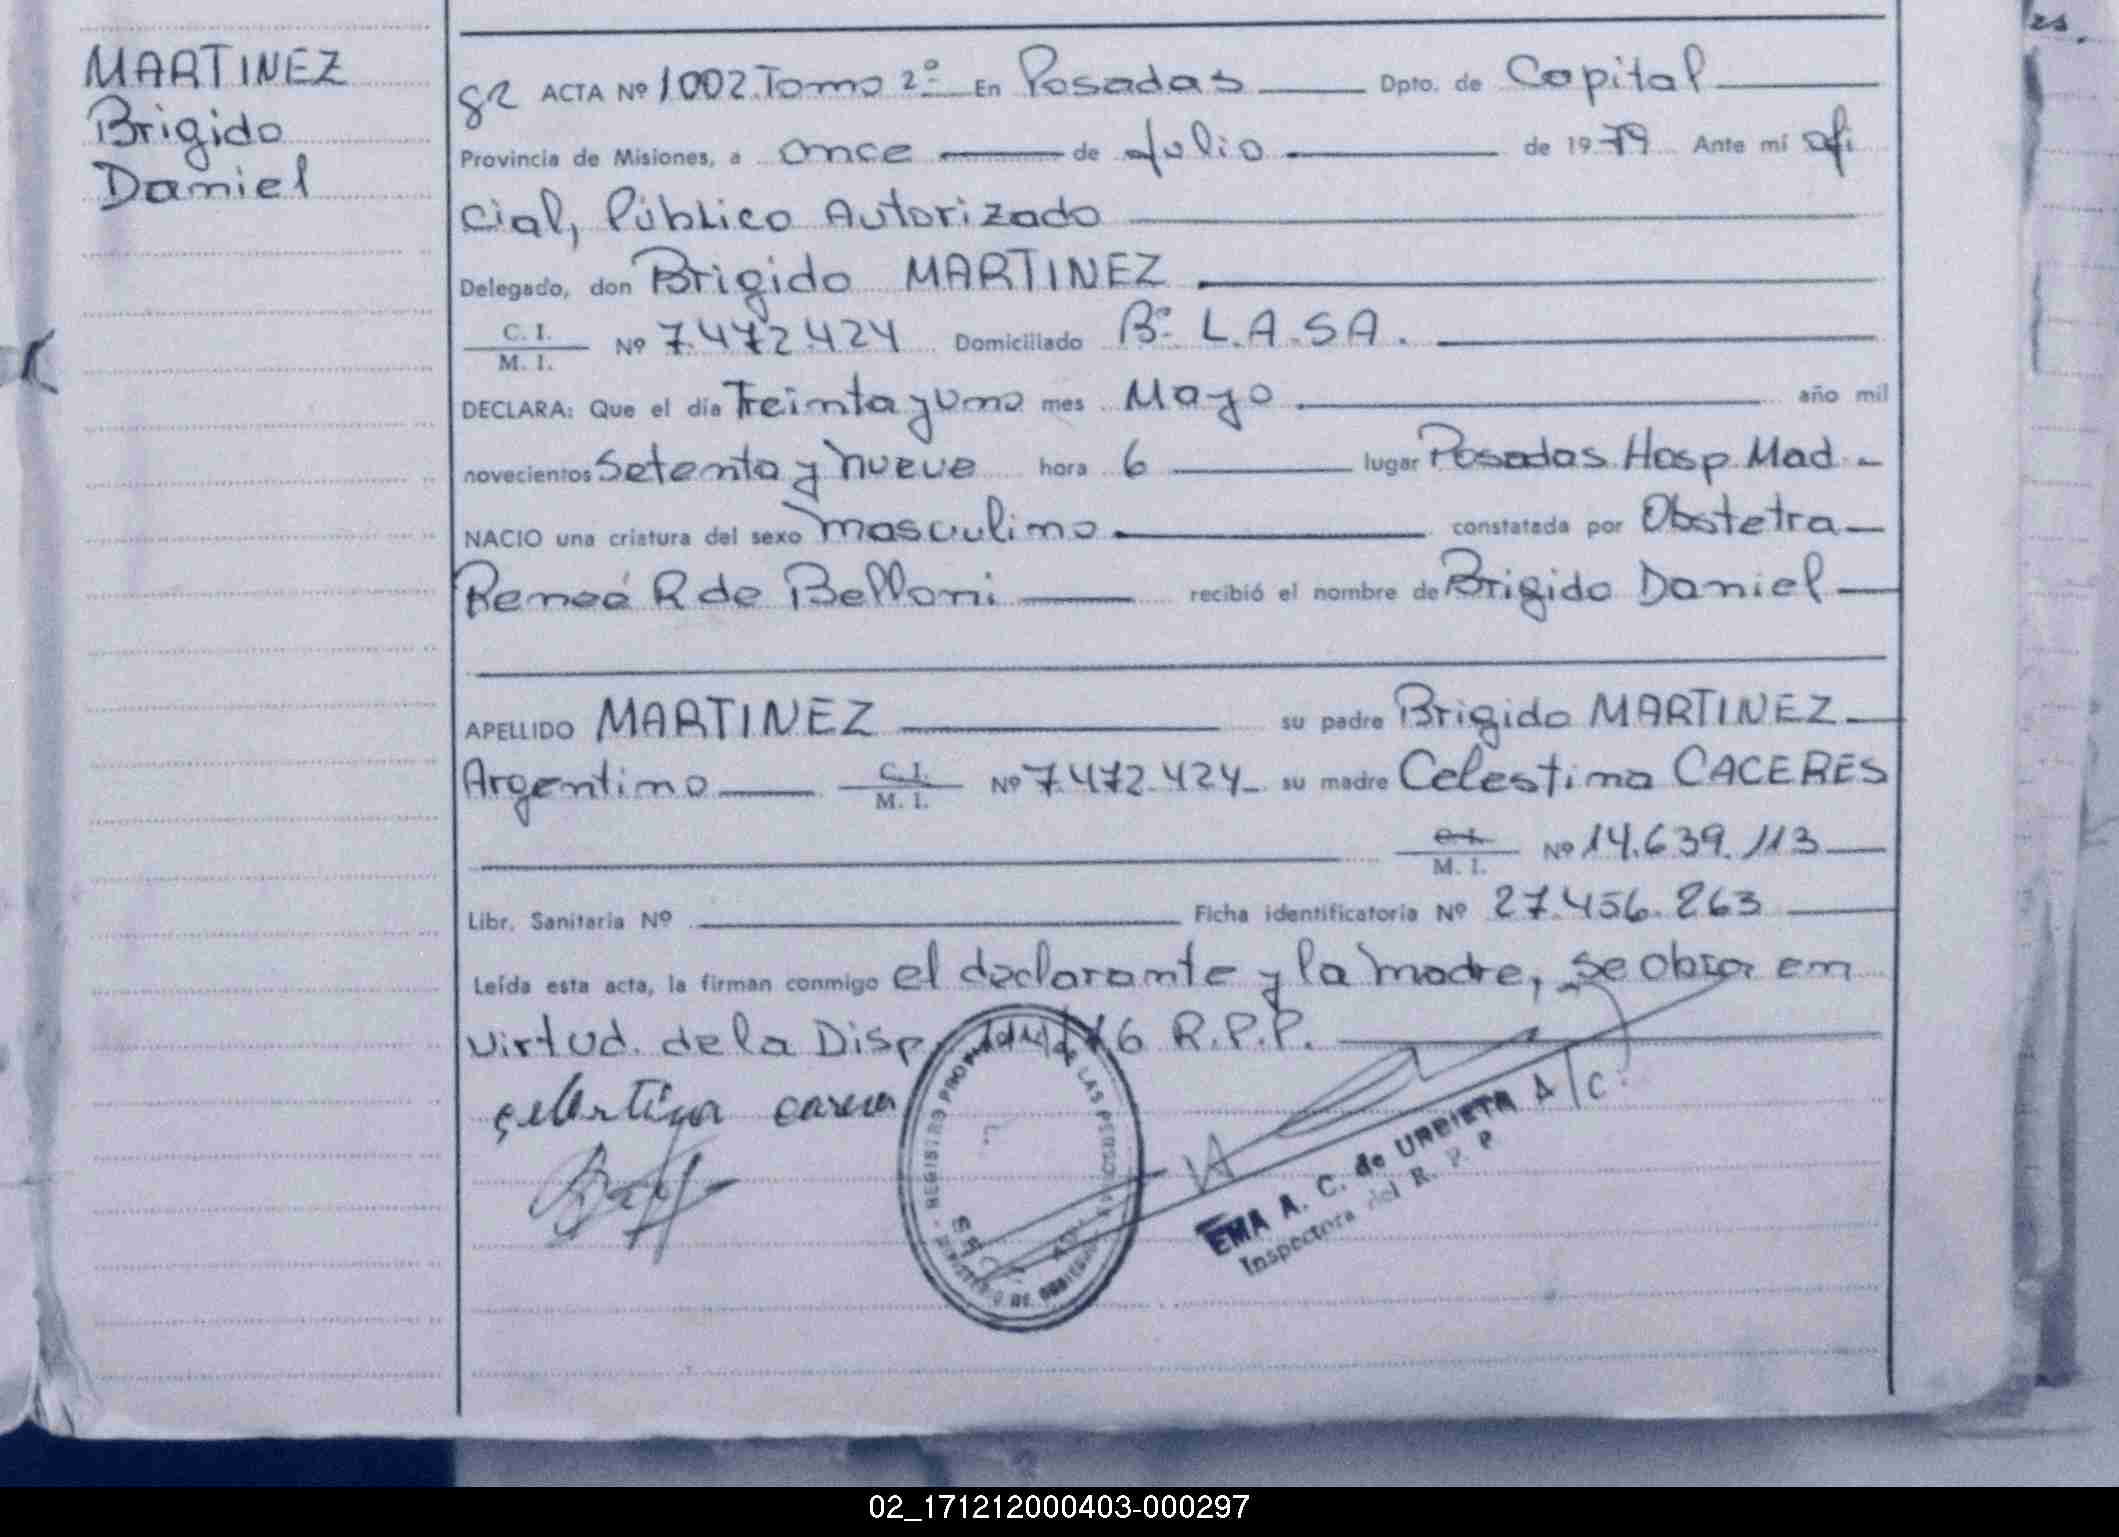 MARTINEZ
Brigido
Daniel
82 ACTA Nº 1002 Tomo 2º En Posadas Dpto. de Capital
Provincia de Misiones, a once de Julio de 1979 Ante mí ofi
cial, Público Autorizado
Delegado, don Brigido MARTINEZ
C. I.
M. I.
Nº 7.472.424 Domiciliado Bº L.A.SA.
DECLARA: Que el día Treinta y uno mes Mayo año mil
novecientos Setenta y nueve hora 6 lugar Posadas Hosp. Mad.
NACIO una criatura del sexo masculino constatada por Obstetra
Reneé R de Belloni recibió el nombre de Brigido Daniel
APELLIDO MARTINEZ su padre Brigido MARTINEZ
Argentino C. I. M. I. Nº 7.472.424 su madre Celestina CACERES
C. I. M. I. Nº 14.639.113
Libr. Sanitaria Nº Ficha identificatoria Nº 27.456.263
Leída esta acta, la firman conmigo el declarante y la madre, se obra en
virtud. de la Disp. R.P.P.
REGISTRO PROV. DE LAS PERSONAS
MINISTERIO DE GOBIERNO
EMA A. C. de URBIETA A/C
Inspectora del R. P. P
02_171212000403-000297